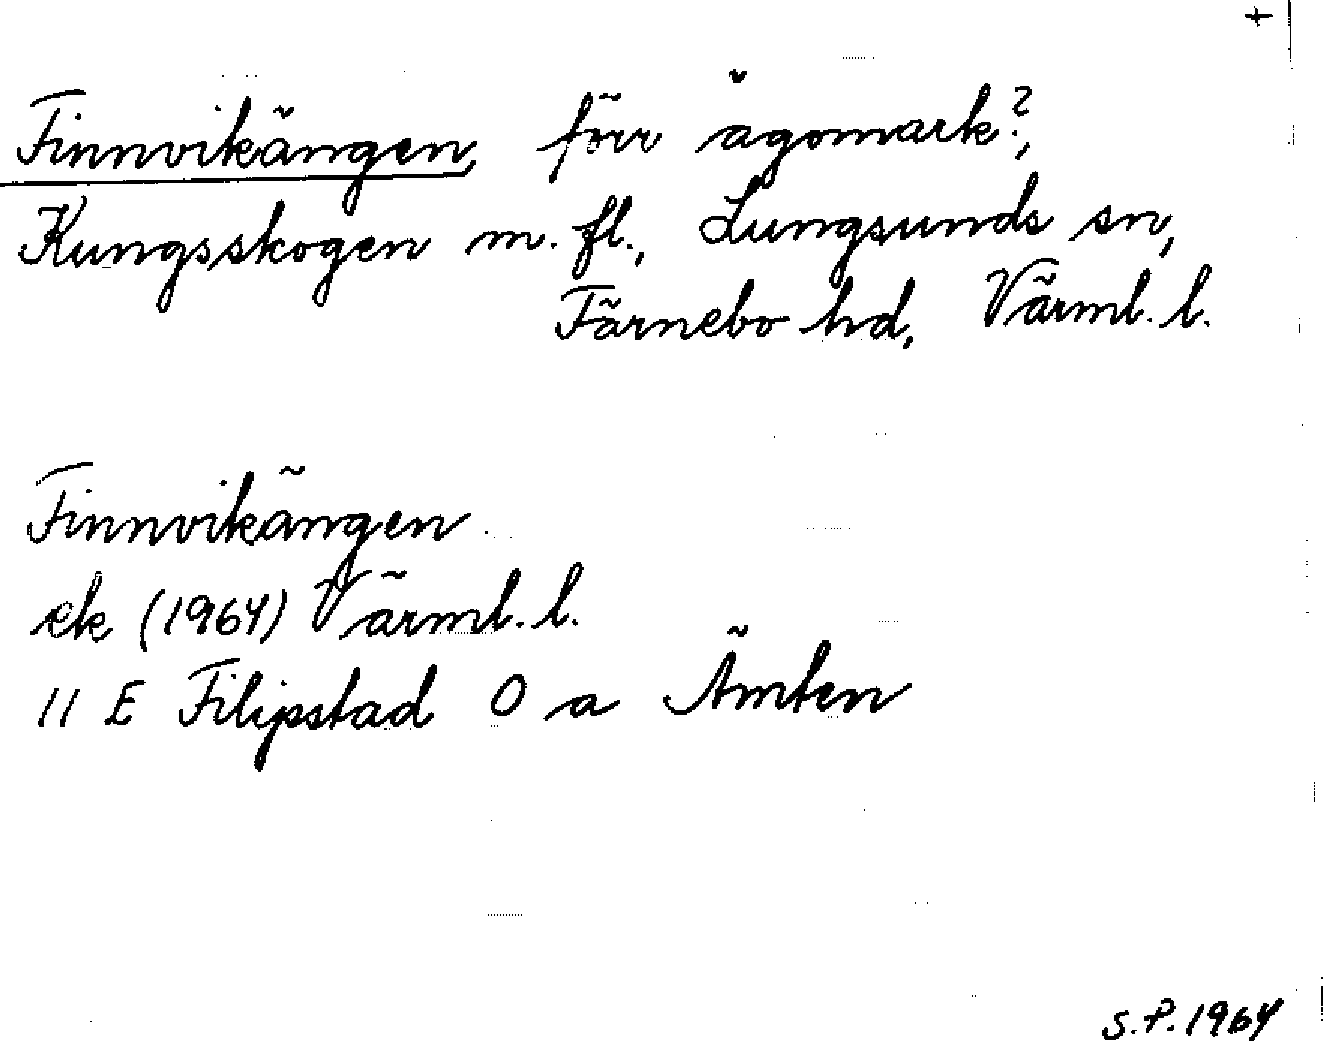 +
Finnvikängen, förr ägomark?,
Kungsskogen m. fl., Lungsunds sn,
Färnebo hd, Värml. l.
Finnvikängen
ek (1964) Värml. l.
11 E Filipstad 0 a Ämten
S.P. 1964